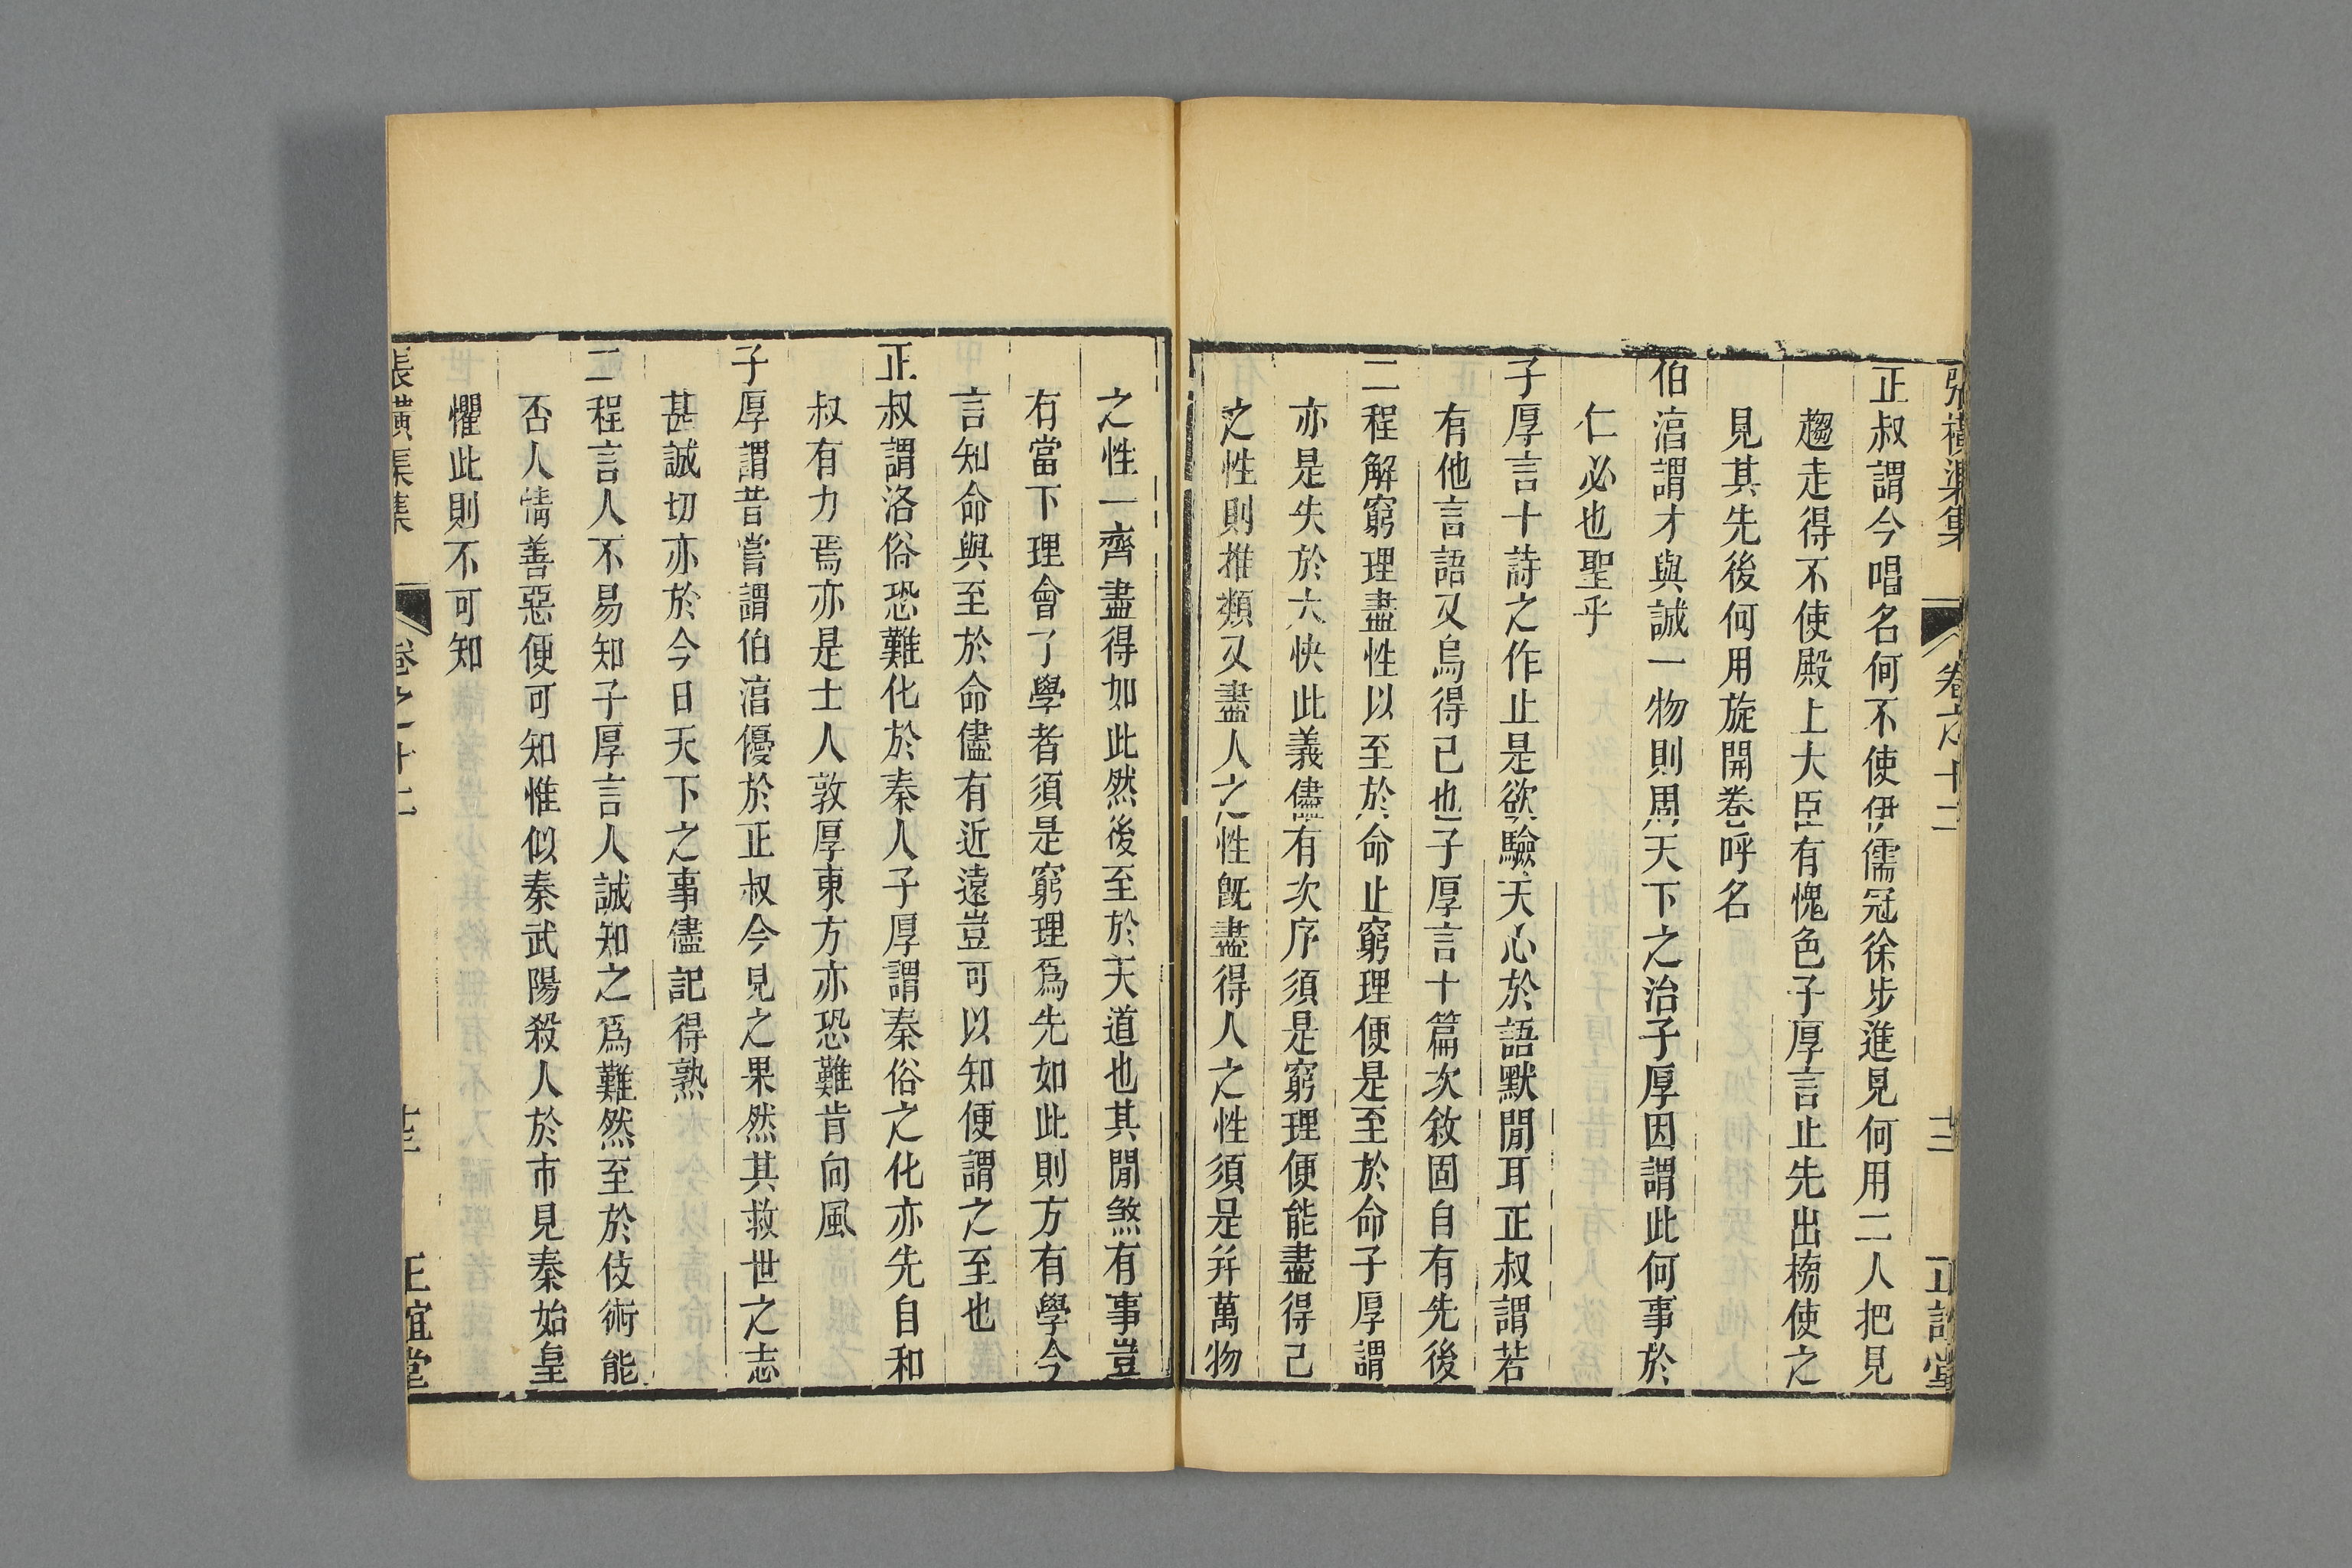 張橫渠集 卷之十二 十二 正誼堂
正叔謂今唱名何不使伊儒冠徐步進見何用二人把見
趨走得不使殿上大臣有愧色子厚言止先出榜使之
見其先後何用旋開卷呼名
伯淳謂才與誠一物則周天下之治子厚因謂此何事於
仁必也聖乎
子厚言十詩之作止是欲驗天心於語默閒耳正叔謂若
有他言語又烏得已也子厚言十篇次敘固自有先後
二程解窮理盡性以至於命止窮理便是至於命子厚謂
亦是失於太快此義儘有次序須是窮理便能盡得己
之性則推類又盡人之性旣盡得人之性須是幷萬物
之性一齊盡得如此然後至於天道也其閒煞有事豈
有當下理會了學者須是窮理爲先如此則方有學今
言知命與至於命儘有近遠豈可以知便謂之至也
正叔謂洛俗恐難化於秦人子厚謂秦俗之化亦先自和
叔有力焉亦是士人敦厚東方亦恐難肯向風
子厚謂昔嘗謂伯淳優於正叔今見之果然其救世之志
甚誠切亦於今日天下之事儘記得熟
二程言人不易知子厚言人誠知之爲難然至於伎術能
否人情善惡便可知惟似秦武陽殺人於市見秦始皇
懼此則不可知
張橫渠集 卷之十二 正誼堂